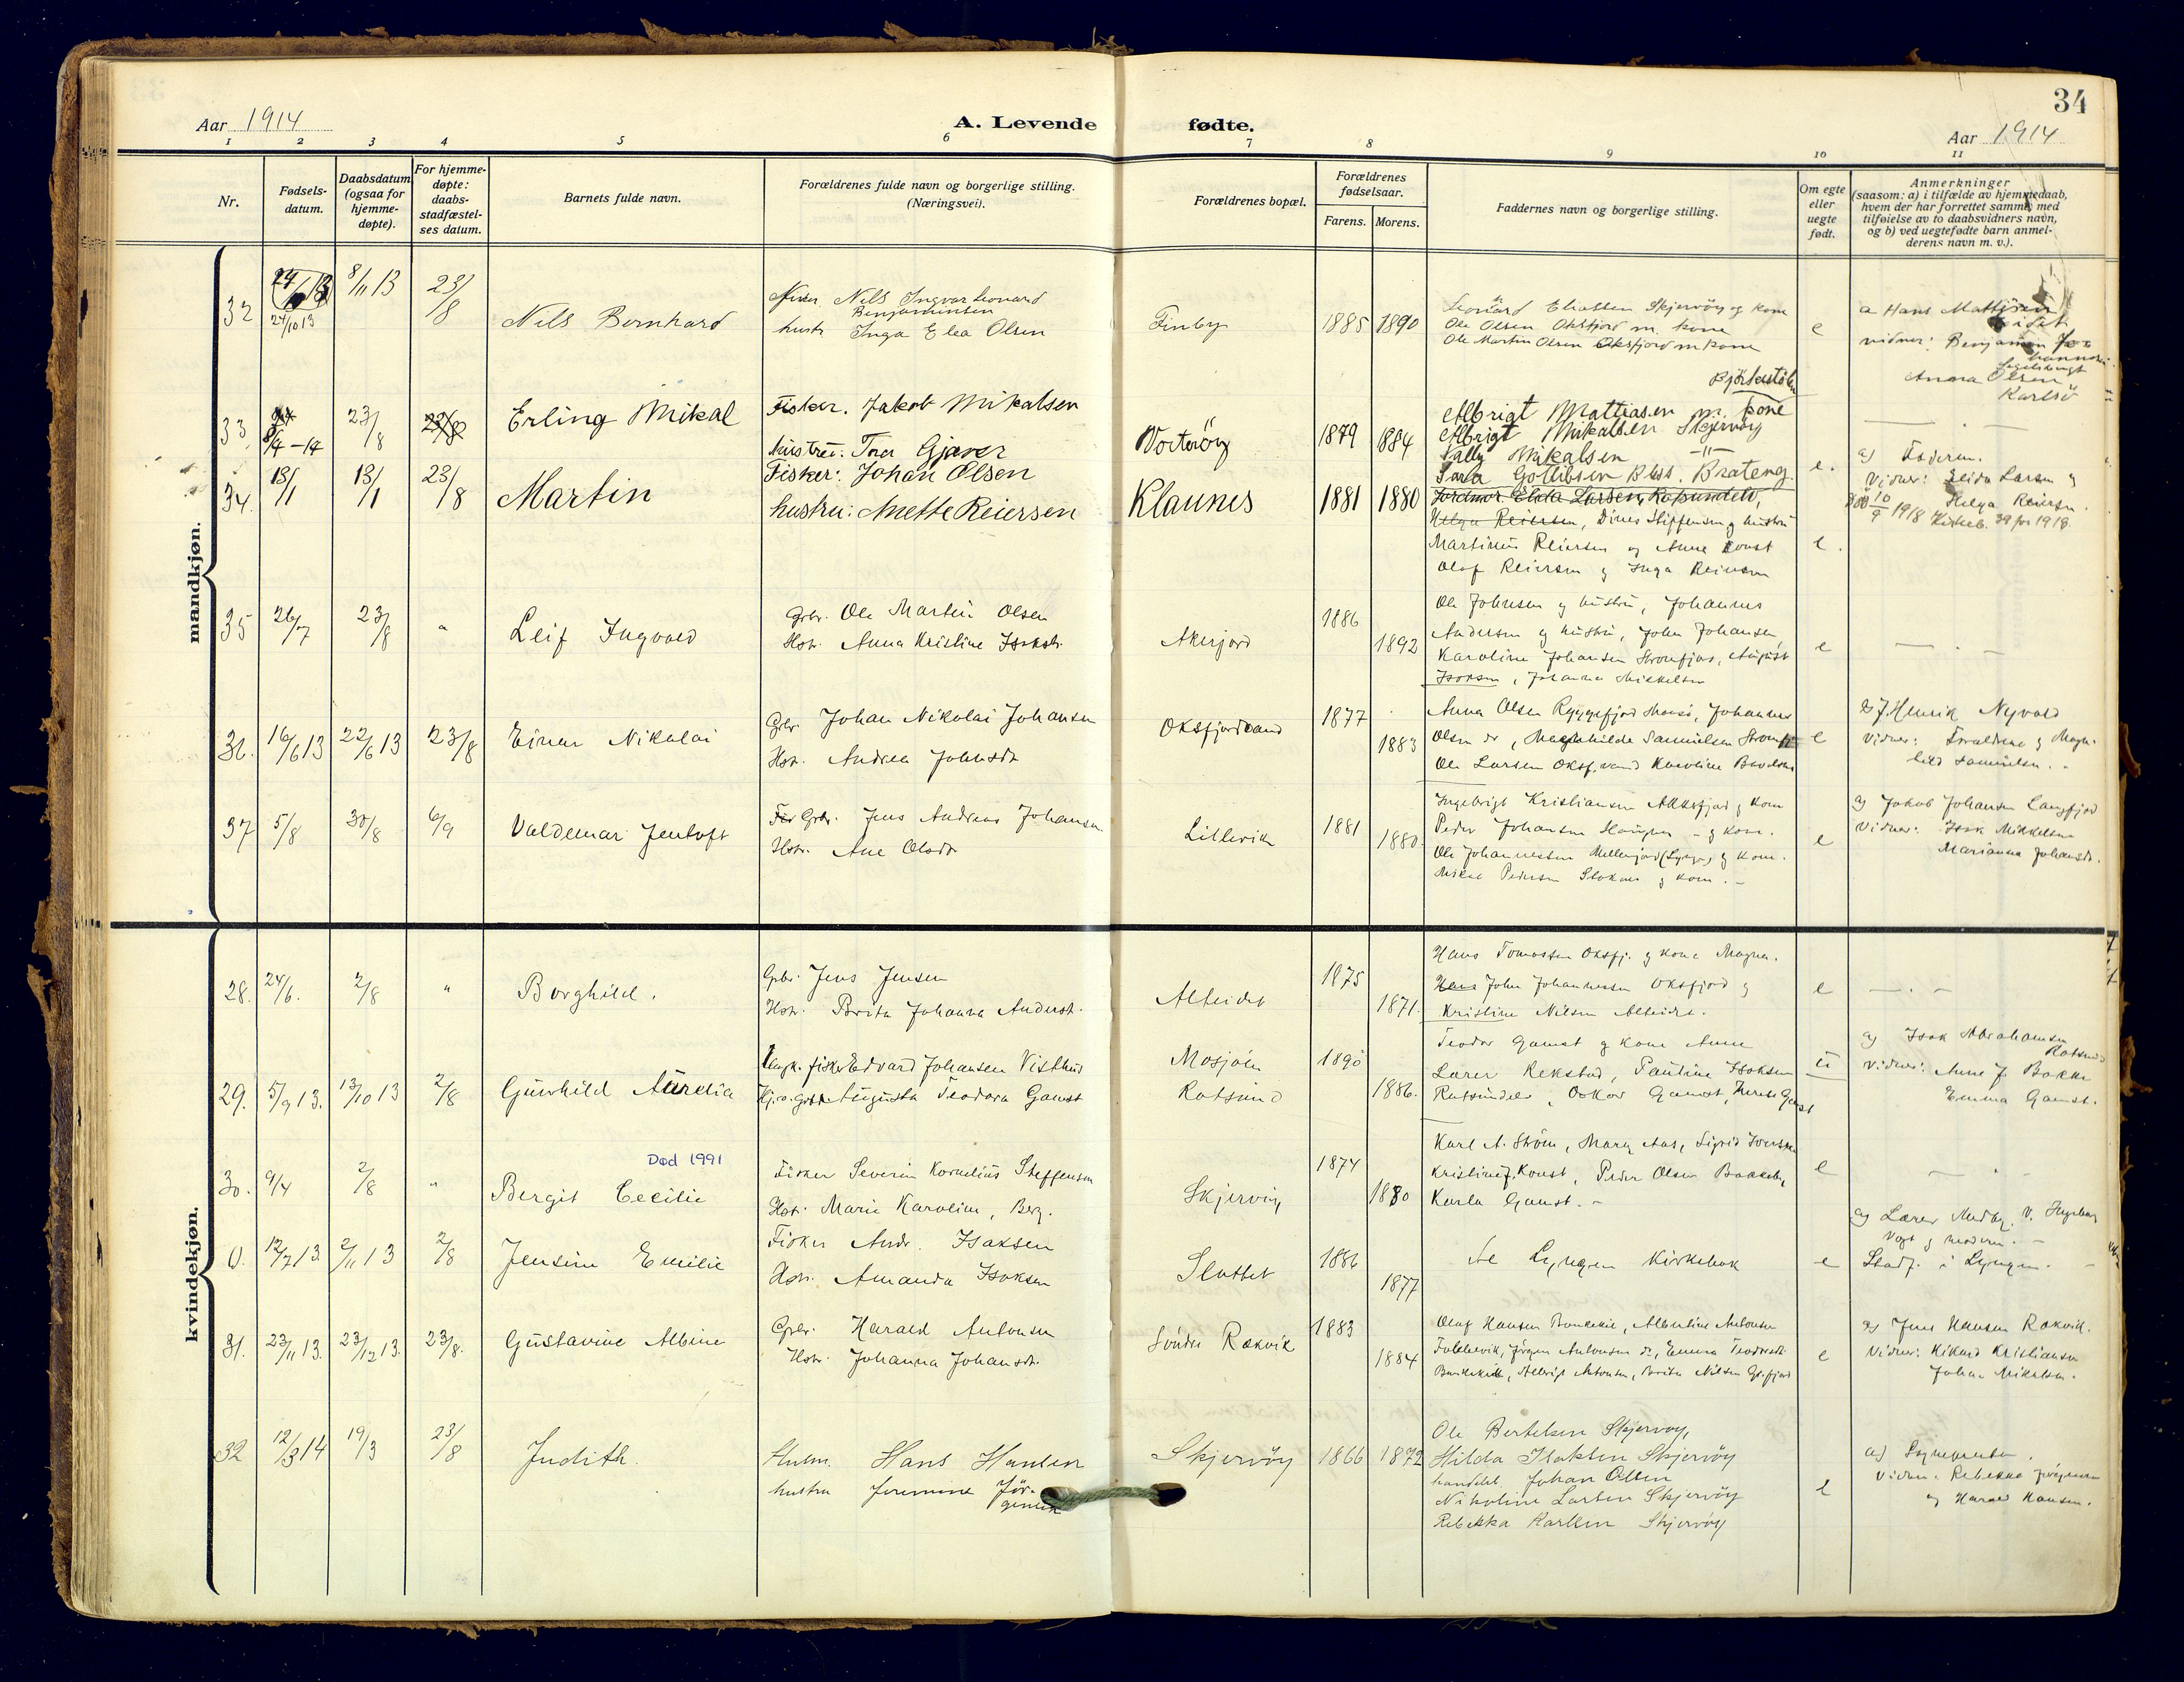 34
Aar 1914
A. Levende fødte.
Aar 1914
1 2 3 4 5 6 7 8 9 10 11
Nr.
Fødsels-
datum.
Daabsdatum
(ogsaa for
hjemme-
døpte).
For hjemme-
døpte:
daabs-
stadfæstel-
ses datum.
Barnets fulde navn.
Forældrenes fulde navn og borgerlige stilling.
(Næringsvei).
Forældrenes bopæl.
Forældrenes
fødselsaar.
Farens. Morens.
Faddernes navn og borgerlige stilling.
Om egte
eller
uegte
født.
Anmerkninger
(saasom: a) i tilfælde av hjemmedaab,
hvem der har forrettet samme med
tilføielse av to daabsvidners navn,
og b) ved uegtefødte barn anmel-
derens navn m. v.).
mandkjøn.
32 24/10 13 8/11 13 23/8 Nils Bernhard
Nils Ingvar Leonard
Benjaminsen
hustr. Inga Elea Olsen
Finby 1885 1890
Leonard Eliassen Skjervöy og kone
Ole Olsen Oksfjord m. kone
Ole Martin Olsen Oksfjord m kone
e
a Hans Mattisen
vidner: Benjamin Jo-
hannesen
Anna Olsen
Karlsö
33 8/4-14 23/8 23/8 Erling Mikal
Fisker. Jakob Mikalsen
hustru: Tora Gjæver
Vorteröy 1879 1884
Albrigt Mattiasen m. kone
Albrigt Mikalsen Skjervöy
Vally Mikalsen -"-
Sara Gotlibsen Bratteng
e.
34. 13/1 13/1 23/8 Martin
Fisker: Johan Olsen
hustru: Anette Reiersen
Klaunes 1881 1880
Jordmor Elida Larsen, Rotsundelv,
Helga Reiersen, Dines Steffensen og hustru
Martinus Reiersen og Anne Konst
Olaf Reiersen og Inga Reiersen
e.
a) Faderen.
Vidner: Elida Larsen og
Helga Reiersen.
Död 10/9 1918 Kirkeb. 39 for 1918.
35 26/7 23/8 " Leif Ingvald
Gbr. Ole Martin Olsen
Hstr. Anna Kristine Isakstr.
Akerjord 1886 1892
Ole Johnsen og hustru, Johannes
Andersen og hustru, John Johansen,
Karoline Johansen, August
Isaksen, Johanna Mikkelsen
e
36. 16/6 13 22/6 13 23/8 Einar Nikolai
Gbr. Johan Nikolai Johansen
Hstr. Andrea Johnsdr
Oksfjordvand 1877 1883
Anna Olsen, Johannes
Olsen do, Magnhilde Samuelsen
Ole Larsen Oksf.vand Karoline
e
a) J. Henrik Nyvold
Vidner: Forældrene og Magn-
hild Samuelsen.
37 5/8 30/8 6/9 Valdemar Jentoft
Gbr. Jens Andreas Johansen
Hstr. Ane Olsdr
Lillevik 1881 1880
Ingebrigt Kristiansen og kone
Peder Johansen og kone.
Ole Johannessen (Lyngen) og kone.
Mikal Pedersen og kone.
e
a) Jakob Johansen Langfjord
Vidner: Isak Mikkelsen
Marianna Johansdr.
kvindekjøn.
28. 24/6. 2/8 " Borghild.
Gbr. Jens Jensen
Hstr. Brita Johanna Anderst.
Alteidet 1875 1871.
Hans Tomassen Oksfj. og kone Magna.
John Johannessen Oksfjord og
Kristine Nilsen Alteidet.
e
29. 5/9 13. 13/10 13 2/8 Gunhild Aurelia
Ungk. fisker Edvard Johansen Visthus
Augusta Teodora Gamst
Mosjöen
Rotsund
1890 1886.
Teodor Gamst og kone Anne
Lærer Rekstad, Pauline Isaksen
Rotsundelv, Oskar Gamst, Gamst
u
a) Isak Abrahamsen
Rotsund
Vidner: Anne J. Bakke
Emma Gamst.
Død 1991
30. 9/4 2/8 " Bergit Cecilie
Fisker Severin Kornelius Steffensen
Hstr. Marie Karoline, Berg.
Skjervöy 1874 1880
Karl A. Ström, Mary Aas, Sigrid Iversen
Kristine J. Konst, Peder Olsen Bakkeby,
Karla Gamst. -
e
0. 12/7 13. 2/11 13 2/8 Jensine Emilie
Fisker Andr. Isaksen
Hstr. Amanda Isaksen
Slottet 1886 1877
Se Lyngen Kirkebok
e
a) Lærer
Vogt og moderen.
Stadf. i Lyngen.
31. 23/11 13. 23/12 13. 23/8. Gustavine Albine
Gbr. Harald Antonsen
Hstr. Johanna Johansdr.
Söndre Rakvik 1883 1884
Olaf Hansen, Albertine Antonsen
Jörgen Antonsen do, Emma
Albrigt Antonsen, Brita Nilsen
e
a) Jens Hansen Rakvik.
Vidner: Rikard Kristiansen
Johan Mikalsen.
32 12/3 14 19/3 23/8 Judith
Hans Hansen
hustru Joremine Jör-
gensen
Skjervöy 1866 1872
Ole Bertelsen Skjervoy,
Hilda Isaksen Skjervöy
handelsb. Johan Olsen
Nikoline Larsen Skjervöy
Rebekka Karlsen Skjervöy
e
a) Sogneprsten.
Vidner: Rebekka Jörgensen
og Harald Hansen.